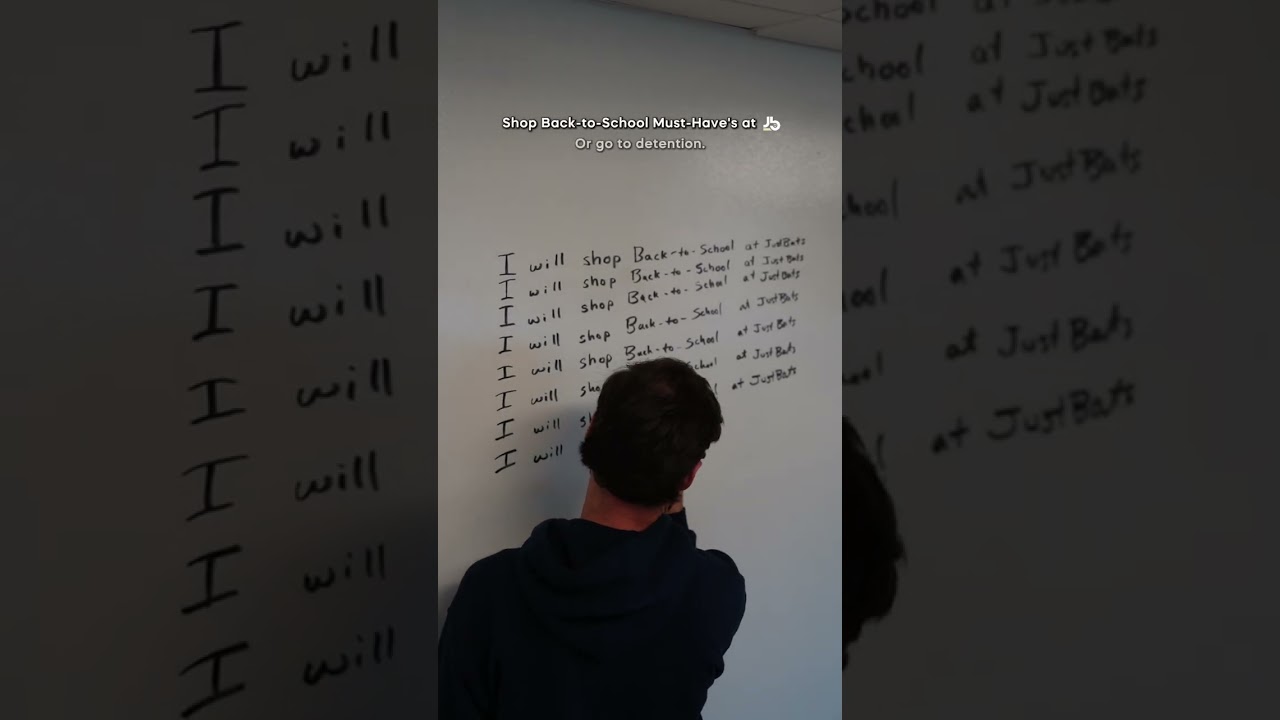 Shop Back-to-School Must-Have's at JB
Or go to detention.
I will shop Back-to-School at JustBats
I will shop Back-to-School at JustBats
I will shop Back-to-School at JustBats
I will shop Back-to-School at JustBats
I will shop Back-to-School at JustBats
I will at JustBats
I will at JustBats
I will